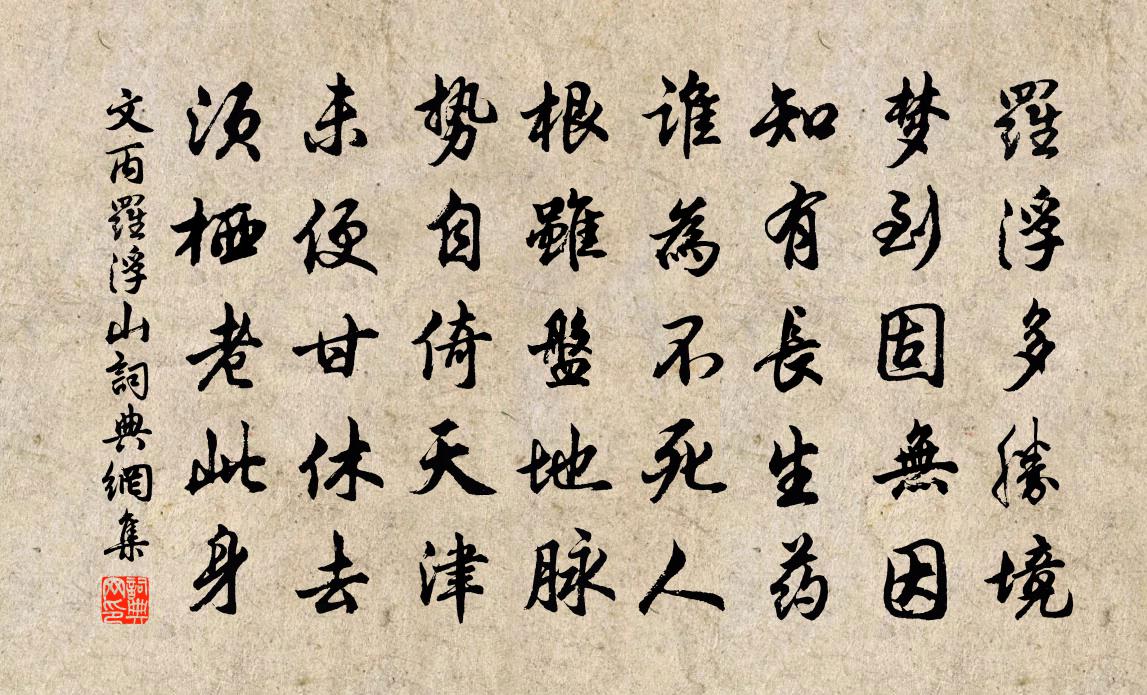 羅浮多勝境
梦到固無因
知有長生药
谁為不死人
根雖盤地脉
势自倚天津
未便甘休去
须栖老此身
文丙羅浮山詞典網集
詞典
网印